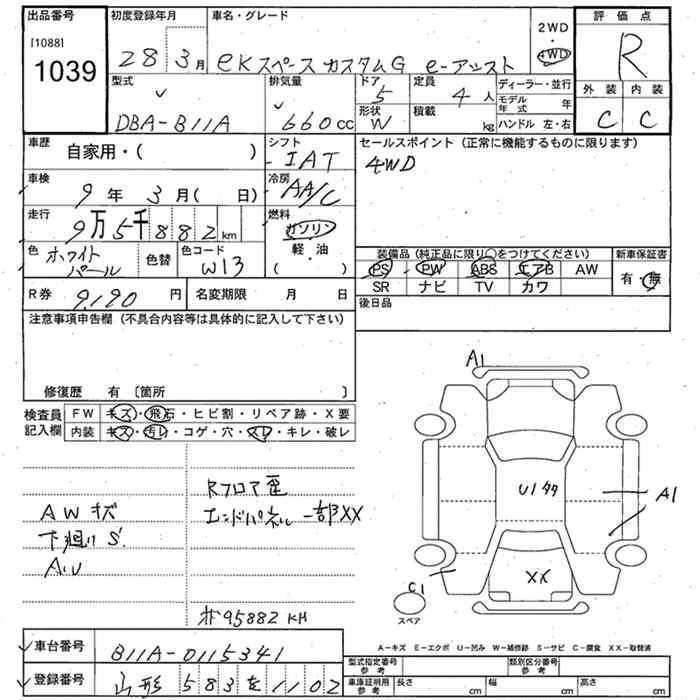 出品番号
[1088]
1039
初度登録年月
28 3月
車名・グレード
eKスペース カスタムG e-アシスト
2WD
・
4WD
評価点
R
外装 内装
C C
型式
DBA-B11A
排気量
660cc
ドア
5
形状
W
定員
4人
積載
kg
ディーラー・並行
モデル年式 年
ハンドル 左・右
車歴
自家用・( )
シフト
IAT
セールスポイント (正常に機能するものに限ります)
4WD
車検
9年 3月( 日)
冷房
AA/C
走行
9万5千882km
燃料
ガソリン
軽・油
( ・ )
色 ホワイトパール
色替
色コード
W13
装備品(純正品に限り○をつけてください)
新車保証書
PS PW ABS エアB AW
有・無
SR ナビ TV カワ
R券 9,190円
名変期限 月 日
後日品
注意事項申告欄(不具合内容等は具体的に記入して下さい)
修復歴 有〔箇所 〕
検査員記入欄
FW キズ・飛石・ヒビ割・リペア跡・X要
内装 キズ・汚れ・コゲ・穴・スレ・キレ・破レ
Rフロア歪
AWキズ
エンドパネル一部XX
下廻りS'
#95882KM
A1
U1タタ
A1
XX
C1
スペア
A-キズ E-エクボ U-凹み W-補修跡 S-サビ C-腐食 XX-取替済
車台番号 B11A-0115341
登録番号 山形 583 を 1102
型式指定番号 参考
類別区分番号 参考
車庫証明用 参考
長さ cm
幅 cm
高さ cm